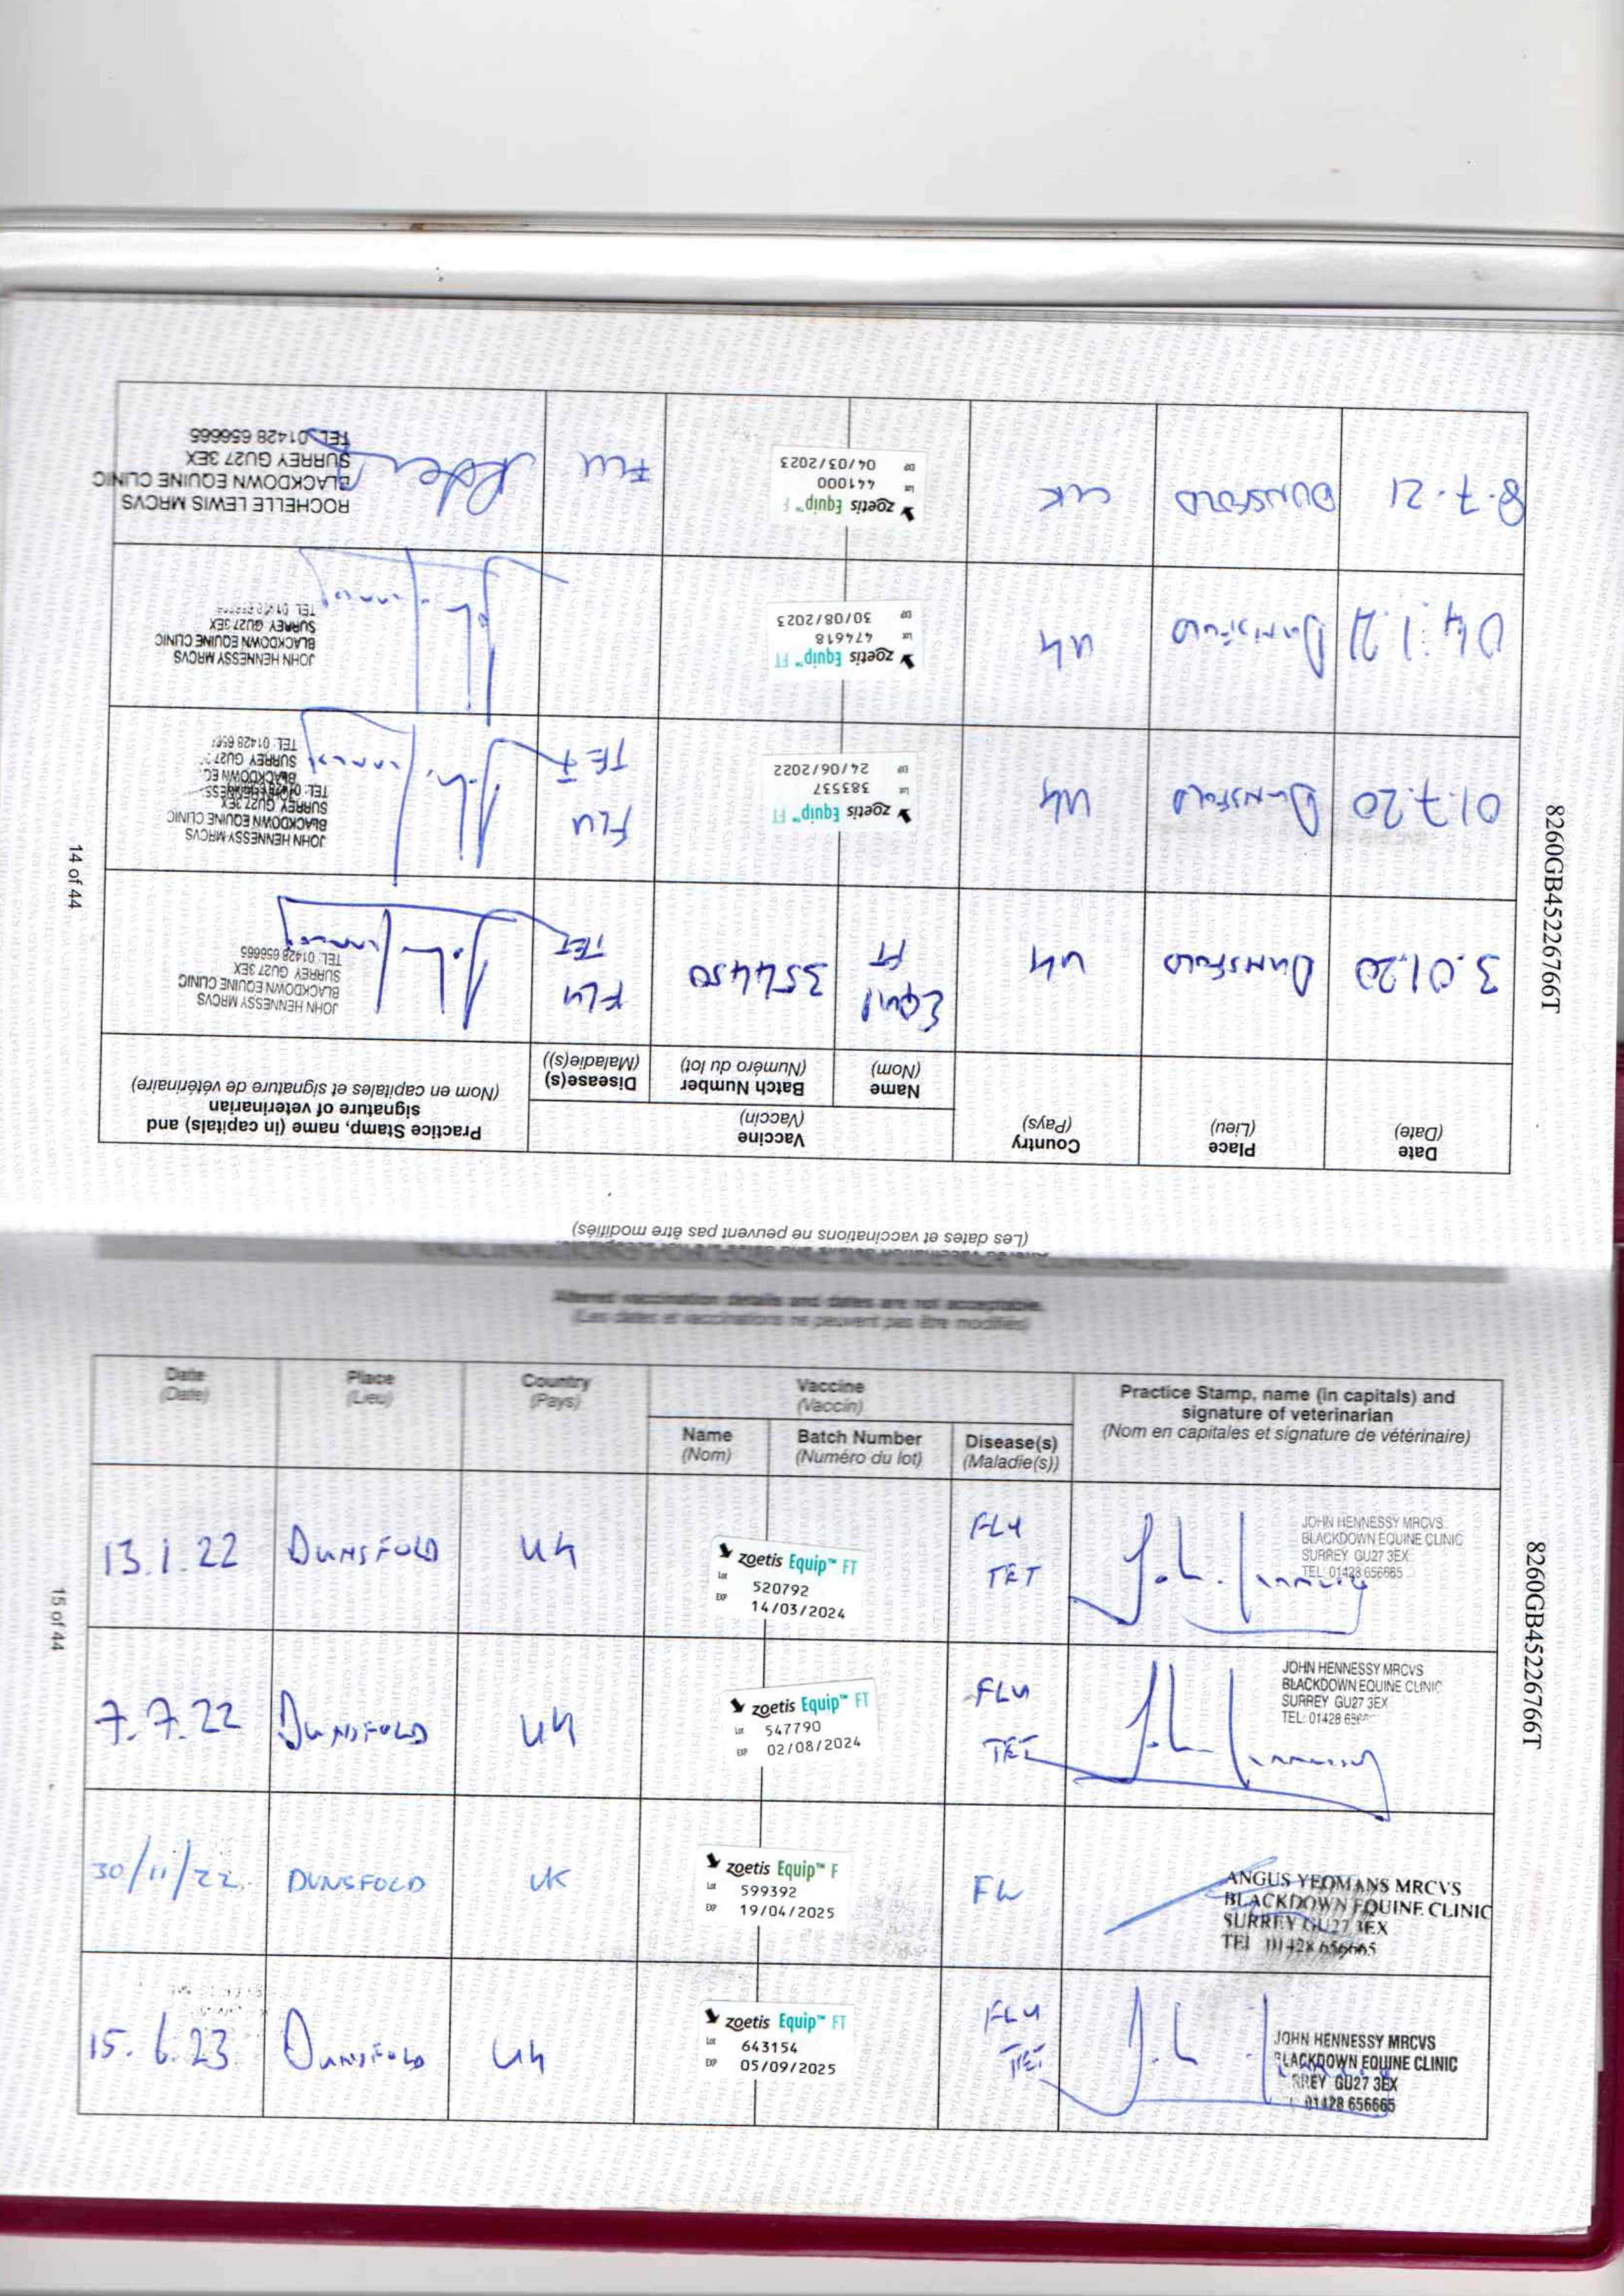 8260GB45226766T
14 of 44
(Les dates et vaccinations ne peuvent pas être modifiés)
Date
(Date)
Place
(Lieu)
Country
(Pays)
Vaccine
(Vaccin)
Name
(Nom)
Batch Number
(Numéro du lot)
Disease(s)
(Maladie(s))
Practice Stamp, name (in capitals) and
signature of veterinarian
(Nom en capitales et signature de vétérinaire)
3.01.20
DUNSFOLD
UK
EQUIP
FT
354450
FLU
TET
JOHN HENNESSY MRCVS
BLACKDOWN EQUINE CLINIC
SURREY GU27 3EX
TEL: 01428 656665
01.7.20
DUNSFOLD
UK
zoetis Equip™ FT
Lot 383537
EXP 24/06/2022
FLU
TET
JOHN HENNESSY MRCVS
BLACKDOWN EQUINE CLINIC
SURREY GU27 3EX
04.1.21
DUNSFOLD
UK
zoetis Equip™ FT
Lot 474618
EXP 30/08/2023
JOHN HENNESSY MRCVS
BLACKDOWN EQUINE CLINIC
SURREY GU27 3EX
8.7.21
DUNSFOLD
UK
zoetis Equip™ F
Lot 441000
EXP 04/03/2023
FLU
ROCHELLE LEWIS MRCVS
BLACKDOWN EQUINE CLINIC
SURREY GU27 3EX
TEL: 01428 656665
8260GB45226766T
15 of 44
Altered vaccination details and dates are not acceptable.
(Les dates et vaccinations ne peuvent pas être modifiés)
Date
(Date)
Place
(Lieu)
Country
(Pays)
Vaccine
(Vaccin)
Name
(Nom)
Batch Number
(Numéro du lot)
Disease(s)
(Maladie(s))
Practice Stamp, name (in capitals) and
signature of veterinarian
(Nom en capitales et signature de vétérinaire)
13.1.22
DUNSFOLD
UK
zoetis Equip™ FT
Lot 520792
EXP 14/03/2024
FLU
TET
JOHN HENNESSY MRCVS
BLACKDOWN EQUINE CLINIC
SURREY GU27 3EX
TEL: 01428 656665
7.7.22
DUNSFOLD
UK
zoetis Equip™ FT
Lot 547790
EXP 02/08/2024
FLU
TET
JOHN HENNESSY MRCVS
BLACKDOWN EQUINE CLINIC
SURREY GU27 3EX
TEL: 01428
30/11/22
DUNSFOLD
UK
zoetis Equip™ F
Lot 599392
EXP 19/04/2025
ANGUS YEOMANS MRCVS
BLACKDOWN EQUINE CLINIC
SURREY GU27 3EX
TEL 01428 656665
15.6.23
DUNSFOLD
UK
zoetis Equip™ FT
Lot 643154
EXP 05/09/2025
FLU
TET
JOHN HENNESSY MRCVS
BLACKDOWN EQUINE CLINIC
GU27 3EX
01428 656665